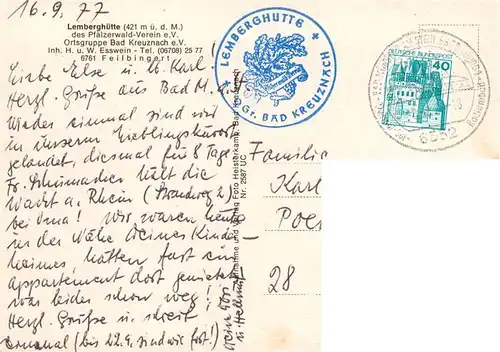 16.9.77
Lemberghütte (421 m ü. d. M.)
des Pfälzerwald-Verein e.V.
Ortsgruppe Bad Kreuznach e.V.
Inh. H. u. W. Esswein - Tel. (06708) 25 77
6761 Feilbingert
LEMBERGHÜTTE
O. Gr. BAD KREUZNACH
40
6552
Liebe Else u. lb. Karl-
Herzl. Grüße aus Bad M.
Wieder einmal sind wir
in unserem Lieblingskurort
gelandet, diesmal für 8 Tage
Fr. Schumacher hält die
Wacht a. Rhein
bei Oma! Wir waren heute
in der Nähe Deines Kinder-
heimes, hätten fast ein
Appartement dort gemietet
war leider schon weg!
Herzl. Grüße u. schreib
einmal (bis 22.9. sind wir fort!)
u. Hellmut
Nr. 2587 UC
Familie
Karl
Pos
28